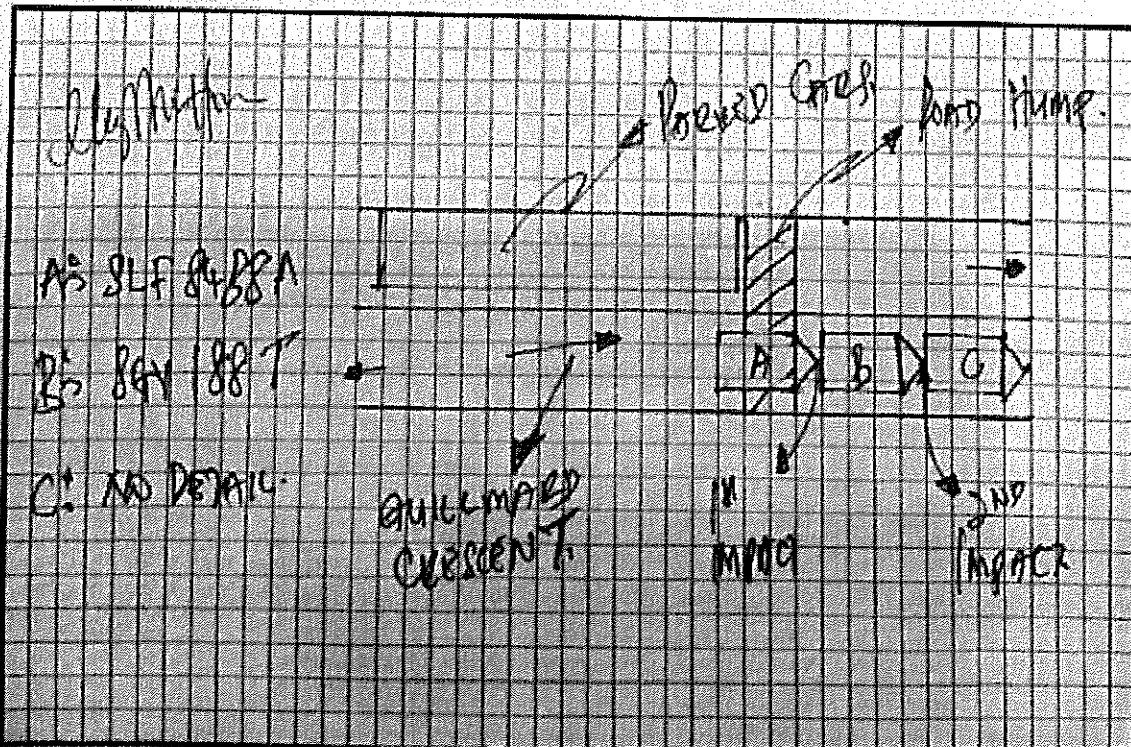 PARKED CARS.
ROAD HUMP.
A: SLF 8458A
B: SGV 188T
C: NO DETAIL.
A
B
C
GUILLMARD
CRESCENT.
1st
IMPACT
2ND
IMPACT